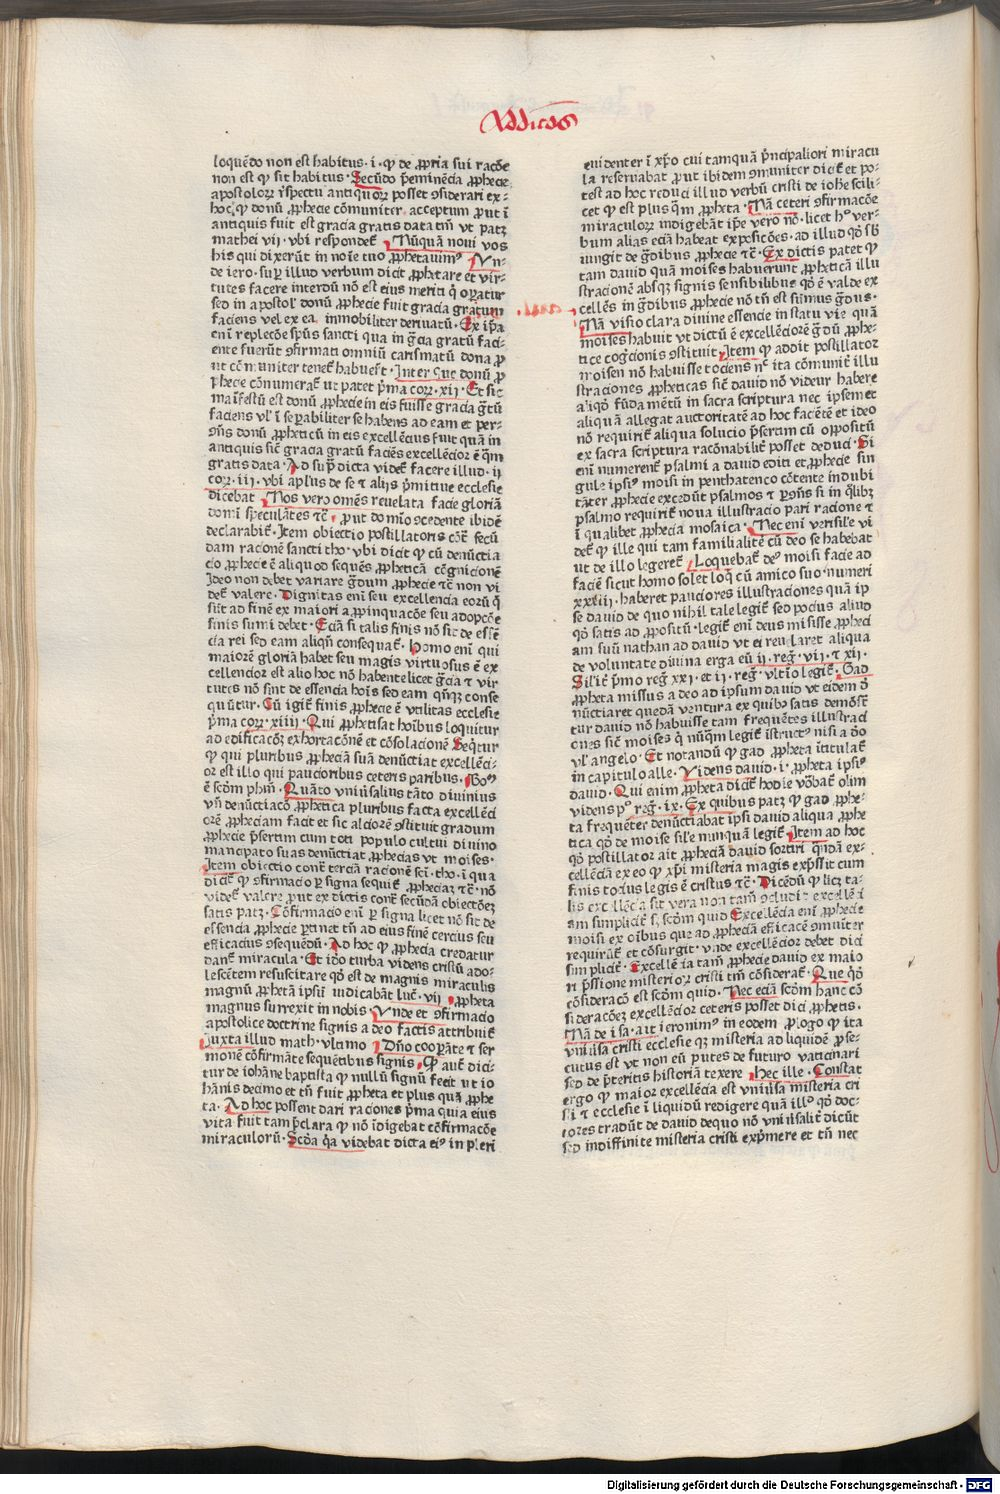 Addicōs
loquēdo non est habitus · i · ꝙ de ꝓpria sui racōe
non est ꝙ sit habitus · Secūdo p̄eminēcia ꝓphecie
apostoloꝝ r̄spectu antiquoꝝ posset ꝯsiderari ex-
hoc, ꝙ donū ꝓphecie cōmuniter acceptum ꝓut ī
antiquis fuit est gracia gratis data tm̄ vt patꝫ
mathei vij · vbi respondet᷑ Nūquā noui vos
his qui dixerūt in noīe tuo ꝓphetauimꝰ Vn-
de iero · suꝑ illud verbum dicit ꝓphetare et vir-
tutes facere interdū nō est eius meriti q̄ oꝑatur
sed in apostol᷑ donū ꝓphecie fuit gracia gratum
faciens vel ex ea immobiliter deriuatū · Ex ip̄a
enī replecōe spūs sancti qua in gr̄cia gratū faci-
ente fuerūt ꝯfirmati omniū carismatū dona ꝓ
ut cōmuniter tenet᷑ habuer̄t · Inter que donū ꝓ
phecie cōnumerat᷑ ut patet p̄ma corꝝ · xij · Et sic
maīfestū est donū ꝓphecie in eis fuisse gracia gr̄tū
faciens vl᷑ ī seꝑabiliter se habens ad eam et per-
ꝯn̄s donū ꝓpheticū in eis excellēcius fuit quā in
antiquis sic̄ gracia gratū faciēs excellēcior ē q̄m
gratis data · Ad sup̄dicta videt᷑ facere illud · ij
corꝝ · iij · vbi apl̄us de se ⁊ alijs p̄mitiue ecclesie
dicebat Nos vero omēs reuelata facie gloriā
domī speculātes ⁊c̄ · ꝓut domīo ꝯcedente ibidē
declarabit᷑ · Item obiectio postillatoris cōt᷑ secū
dam racionē sancti tho · vbi dicit ꝙ cū denūctia
cio ꝓphecie ē aliquod sequēs ꝓpheticā cōgnicionē
Ideo non debet variare gr̄dum ꝓphecie ⁊c̄ non vi
det᷑ valere · Dignitas enī seu excellencia eorū q̄
sūt ad finē ex maiori aꝓpinquacōe seu adopcōe
finis sumi debet · Eciā si talis finis nō sit de essē
cia rei sed eam aliqn̄ consequat᷑ · Homo enī qui
maiorē gloriā habet seu magis virtuosus ē ex
cellencior est alio hoc nō habente licet gr̄cia ⁊ vir
tutes nō sint de essencia hoīs sed eam qn̄qꝫ conse
quūtur · Cū igit᷑ finis ꝓphecie ē vtilitas ecclesie
p̄ma corꝝ xiiij · Qui ꝓphetisat hoībus loquitur
ad edificacōꝫ exhortacōnē et cōsolacionē Seq̄tur
ꝙ qui pluribus ꝓpheciā suā denūctiat excellēci-
or est illo qui paucioribus ceteris paribus · Boꝰ
ē scd̄m phm̄ · Quāto vniūsalius tāto diuinius
vn̄ denūctiacō ꝓphetica pluribus facta excellēci
orē ꝓpheciam facit et sic alciorē ꝯstituit gradum
ꝓphecie p̄sertim cum toti populo cultui diuino
mancipato suas denūctiat ꝓphecias vt moises ·
Item obiectio cont᷑ terciā racionē sci · tho · ī qua
dicit᷑ ꝙ ꝯfirmacio ꝑ signa sequit᷑ ꝓpheciaꝫ ⁊c̄ · nō
videt᷑ valere ꝓut ex dictis cont᷑ secūdā obiectōeꝫ
satis patꝫ · Cōfirmacio enī ꝑ signa licet nō sit de
essencia ꝓphecie ꝑtinet tn̄ ad eius finē cercius seu
efficacius ꝯsequēdū · Ad hoc ꝙ ꝓphecia credatur
dant᷑ miracula · Et ido turba videns cristū ado-
lescētem resuscitare qd̄ est de magnis miraculis
magnū ꝓphetā ipsū iudicabāt luc̄ · vij · ꝓpheta
magnus surrexit in nobis · Vnde et ꝯfirmacio
apostolice doctrine signis a deo factis attribuit᷑
Iuxta illud math · vltimo Dn̄o cooꝑāte ⁊ ser
monē cōfirmāte sequētibus signis · Ꝙ aut᷑ dici-
tur de iohāne baptista ꝙ nullū signū fecit ut io
hānis decimo et tn̄ fuit ꝓpheta et plus quā ꝓphe
ta · Ad hoc possent dari raciones p̄ma quia eius
vita fuit tam p̄clara ꝙ nō īdigebat cōfirmacōe
miraculorū · Scd̄a qa videbat dicta eiꝰ in pleri
euidenter ī xp̄o cui tamquā p̄ncipaliori miracu
la reseruabat ꝓut ibidem ꝯmuniter dicit᷑ et po-
test ad hoc reduci illud verbū cristi de iohe scili-
cet ꝙ est plus q̄m ꝓpheta · Nā ceteri ꝯfirmacōe
miraculoꝝ indigebāt ip̄e vero nō · licet hꝰ ver-
bum alias eciā habeat exposicōes · ad illud qd̄ sb
iungit de gr̄dibus ꝓphecie ⁊c̄ · Ex dictis patet ꝙ
tam dauid quā moises habuerunt ꝓpheticā illu
stracionē absqꝫ signis sensibilibus qd̄ ē valde ex
cellēs in gr̄dibus ꝓphecie nō tn̄ est sūmus gr̄dus ·
Nā visio clara diuine essencie in statu vie quā
moises habuit vt dictū ē excellēciorē gr̄dū ꝓphe-
tice cognicionis ꝯstituit Item ꝙ addit postillator
moisen nō habuisse tociens nc̄ ita cōmunit᷑ illu
straciones ꝓpheticas sic̄ dauid nō videtur habere
aliqd̄ fūdamētū in sacra scriptura nec ipsemet
aliquā allegat auctoritatē ad hoc faciētē et ideo
nō requirit᷑ aliqua solucio p̄sertim cū oppositū
ex sacra scriptura racōnabilit᷑ posset deduci · Si
enī numerent᷑ psalmi a dauid editi et ꝓphecie sin
gule ipsiꝰ moisi in penthateuco cōtente indubi
tāter ꝓphecie excedūt psalmos ⁊ ꝑ ꝯn̄s si in q̄libꝫ
psalmo requirit᷑ noua illustracio pari racione ⁊
ī qualibet ꝓphecia mosaica · Nec enī verisile vi
det᷑ ꝙ ille qui tam familialitē cū deo se habebat
ut de illo legeret᷑ Loquebat᷑ deꝰ moisi facie ad
faciē sicut homo solet loqi cū amico suo · numeri
xxxiij · haberet pauciores illustraciones quā ip
se dauid de quo nihil tale legit᷑ sed pocius aliud
qd̄ satis ad ꝓpositū · legit᷑ enī deus misisse ꝓpheci
am suū nathan ad dauid vt ei reuelaret aliqua
de voluntate diuina erga eū ij · reḡ · vij · ⁊ xij ·
Silīt᷑ p̄mo reḡ xxj · et ij · reḡ · vltīo legit᷑ · Gad
ꝓpheta missus a deo ad ipsum dauid vt eidem d̄
nūctiaret quedā ventura ex quibꝰ satis demōst᷑
tur dauid nō habuisse tam frequētes illustraci
ones sic̄ moises q̄ nūq̄m legit᷑ īstructꝰ nisi a do
vl᷑ angelo · Et notandū ꝙ gad ꝓpheta ītitulat᷑
in capitulo alle · Videns dauid · i · ꝓpheta ipsiꝰ
dauid · Qui enim ꝓpheta dicit᷑ hodie vōbat᷑ olim
videns pꝰ reḡ · ix · Ex quibus patꝫ ꝙ gad ꝓphe-
ta frequēter denūctiabat ipsi dauid aliqua ꝓphe
tica qd̄ de moise sil᷑e nunquā legit᷑ Item ad hoc
qd̄ postillator ait ꝓpheciā dauid sortiri quādā ex-
cellēciā ex eo ꝙ xp̄i misteria magis exp̄ssit cum
finis tocius legis ē cristus ⁊c̄ · Dicēdū ꝙ licꝫ ta-
lis excellēcia sit vera non tam̄ ꝯcludit excellēci
am simplicit᷑ sꝫ scd̄m quid Excellēcia enī ꝓphecie
moisi ex oībus que ad ꝓpheciā efficacē ꝯmuniter
requirūt᷑ et cōsurgit · vnde excellēcior debet dici
simplicit᷑ · Excellēcia tam̄ ꝓphecie dauid ex maio
ri p̄ssione misterioꝝ cristi tm̄ cōsiderat᷑ · Que qd̄
cōsideracō est scd̄m quid · Nec eciā scd̄m hanc cō
sideracōeꝫ excellēcior ceteris posset dici ꝓphetis ·
Nā de isa · ait ieronimꝰ in eodem ꝓlogo ꝙ ita
vniūsa cristi ecclesie qꝫ misteria ad liquidē ꝓse-
cutus est vt non eū putes de futuro vaticinari
sed de p̄teritis historiā texere · Hec ille · Constat
ergo ꝙ maior excellēcia est vniūsa misteria cri
sti ⁊ ecclesie ī liquidū redigere quā illꝰ qd̄ doc-
tores tradūt de dauid de quo nō vniūsalit᷑ dicūt
sed indiffinite misteria cristi exp̄mere et tn̄ nec
Digitalisierung gefördert durch die Deutsche Forschungsgemeinschaft - DFG